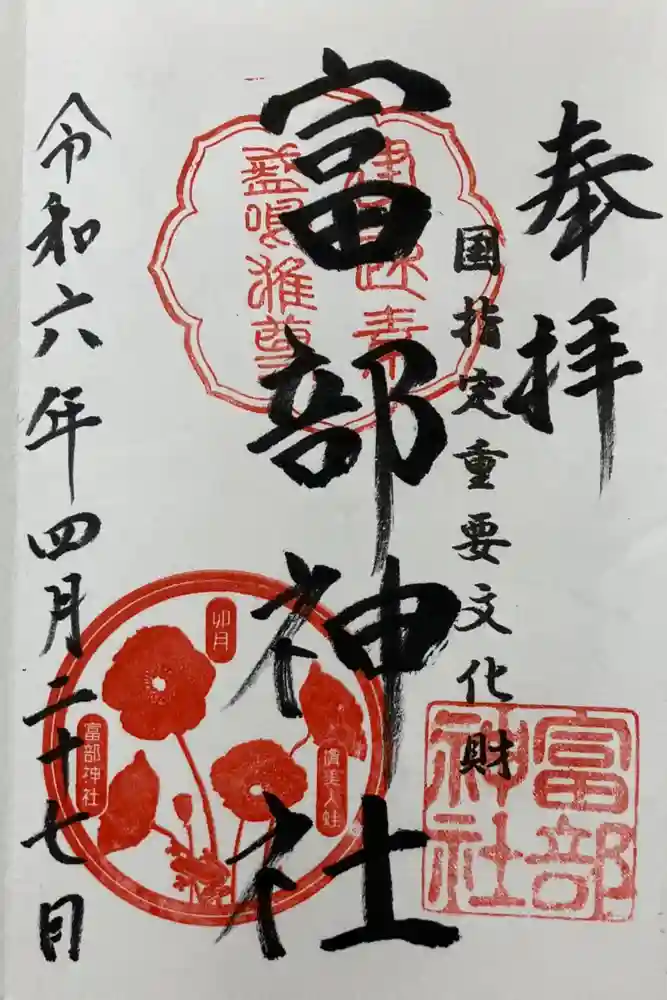 奉拝
国指定重要文化財
富部神社
令和六年四月二十七日
建速素
盞嗚雅尊
卯月
富部神社
虞美人蛙
富部
神社